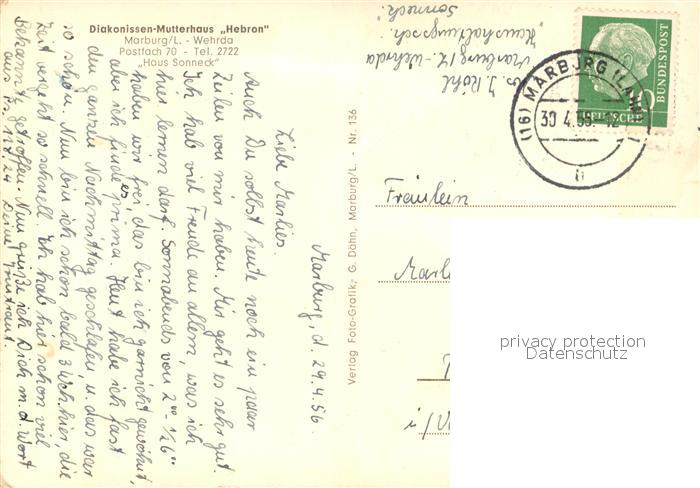 Diakonissen-Mutterhaus „Hebron"
Marburg/L. - Wehrda
Postfach 70 - Tel. 2722
„Haus Sonneck"
Marburg, d. 29.4.56.
Liebe Marlies.
Auch Du sollst heute noch ein paar
Zeilen von mir haben. Mir geht es sehr gut.
Ich hab viel Freude an allem, was ich
hier lernen darf. Sonnabends von 2⁰⁰ - 1/2 6⁰⁰
haben wir frei, das bin ich garnicht gewöhnt,
aber ich finde es prima. Heut habe ich fast
den ganzen Nachmittag geschlafen u. das war
so schön. Nun bin ich schon bald 3 Woch. hier, die
Zeit vergeht so schnell. Ich hab hier schon viel
Bekannte getroffen. Nun grüße ich Dich m. d. Wort
aus Ps. Deine Irmtraut.
Verlag Foto-Grafik: G. Döhn, Marburg/L. - Nr. 136
J. Röhl
Marburg / L. - Wehrda
"Haushaltungssch.
Sonneck"
DEUTSCHE
BUNDESPOST
(16) MARBURG (LAHN)
30.4.56.
Fräulein
Marl
privacy protection
Datenschutz